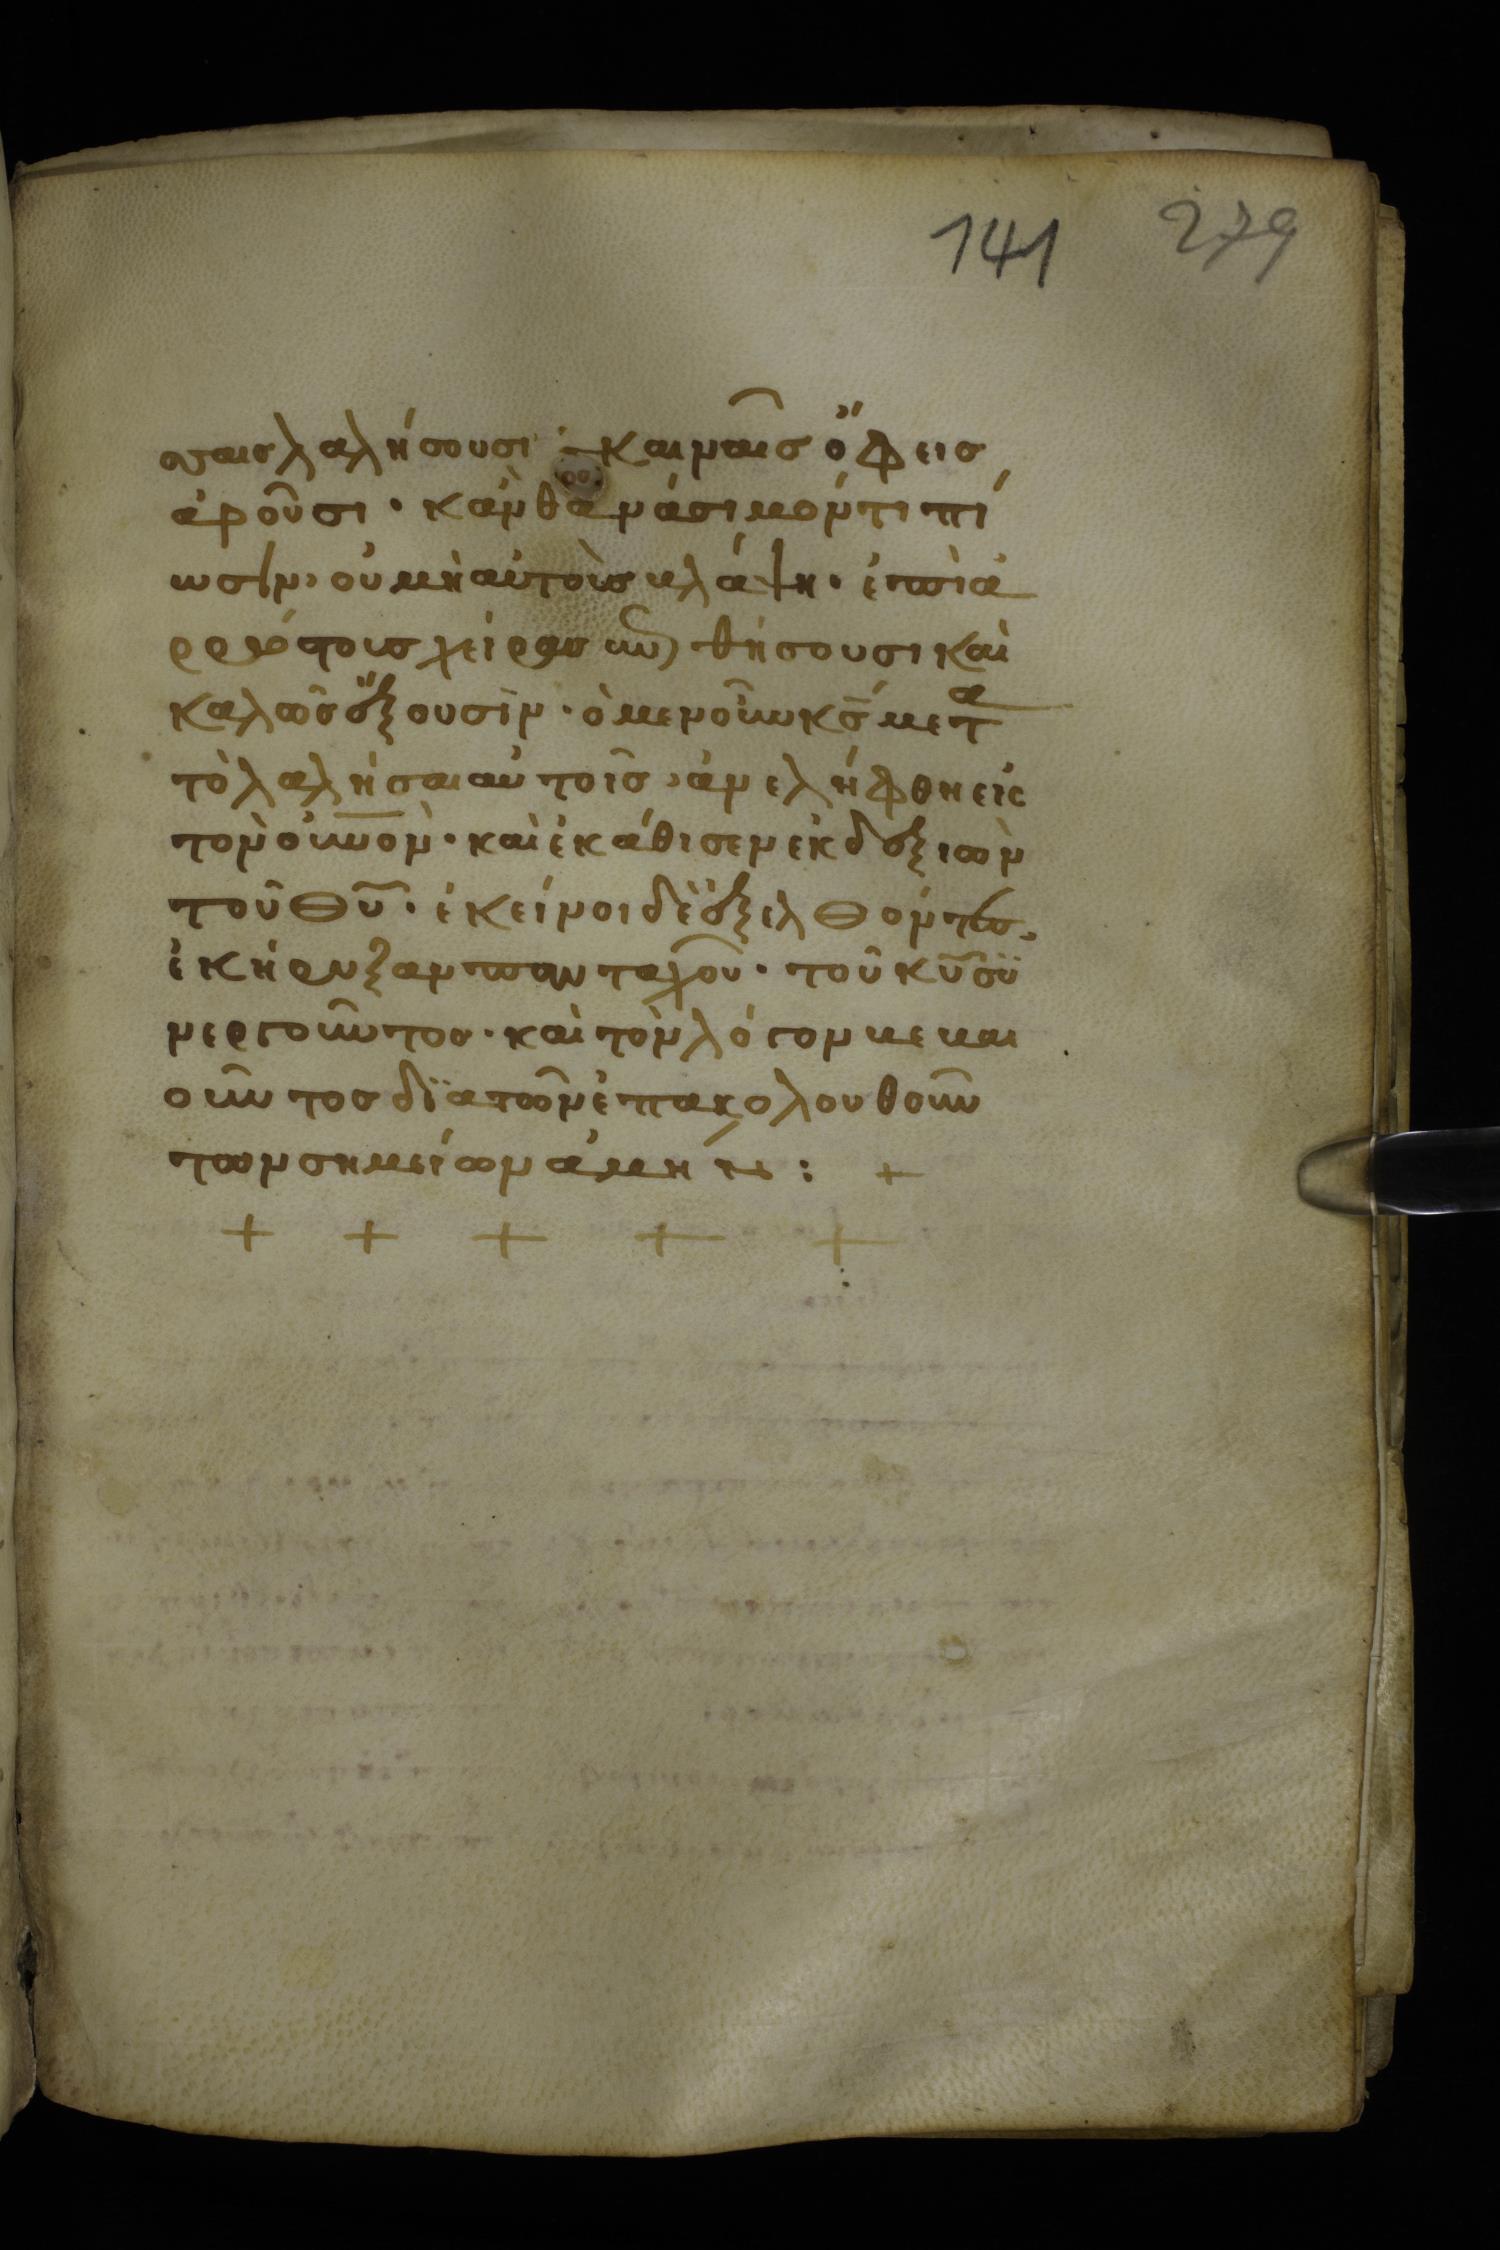 141 279
σαις λαλήσουσι· καιναῖς ὄφεις
ἀροῦσι· κἂν θανάσιμόν τι πί
ωσιν, οὐ μὴ αὐτοὺς βλάψη· ἐπὶ ἀ
ρρώστοις χεῖρας ἐπιθήσουσι καὶ
καλῶς ἕξουσιν· ὁ μὲν οὖν κς̄ μετα
τὸ λαλῆσαι αὐτοῖς, ἀνελήφθη εἰς
τὸν οὐνὸν· καὶ ἐκάθισεν ἐκ δεξιῶν
τοῦ θῦ· ἐκείνοι δὲ ἐξελθόντες,
ἐκήρυξαν πανταχοῦ· τοῦ κῦ συ
νεργοῦντος· καὶ τὸν λόγον βεβαι
οῦντος διὰ τῶν ἐπακολουθοῦν
των σημείων ἀμήν: +
+ + + + +